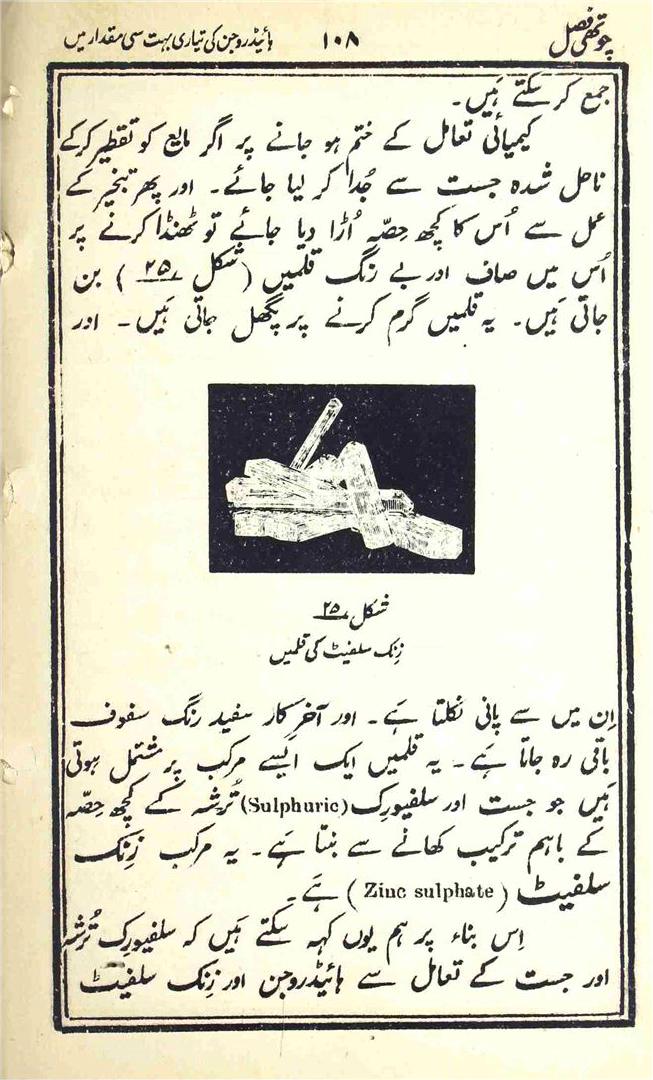 چوتھی فصل ۱۰۸ ہائیڈروجن کی تیاری بہت سی مقدار میں
جمع کر سکتے ہیں۔
کیمیائی تعامل کے ختم ہو جانے پر اگر مایع کو تقطیر کرکے
ناحل شدہ جست سے جُدا کر لیا جائے۔ اور پھر تبخیر کے
عمل سے اُس کا کچھ حِصّہ اُڑا دیا جائے تو ٹھنڈا کرنے پر
اُس میں صاف اور بے رنگ قلمیں (شکل ۲۵) بن
جاتی ہَیں۔ یہ قلمیں گرم کرنے پر پگھل جاتی ہَیں۔ اور
شکل ۲۵
زِنک سلفیٹ کی قلمیں
اِن میں سے پانی نکلتا ہَے۔ اور آخرِ کار سفید رنگ سفوف
باقی رہ جاتا ہَے۔ یہ قلمیں ایک ایسے مرکب پر مشتمل ہوتی
ہَیں جو جست اور سلفیورِک (Sulphuric) تُرشہ کے کچھ حِصّہ
کے باہم ترکیب کھانے سے بنتا ہَے۔ یہ مرکب زِنک
سلفیٹ (Zinc sulphate) ہَے۔
اِس بناء پر ہم یوں کہہ سکتے ہَیں کہ سلفیورِک تُرشہ
اور جست کے تعامل سے ہائیڈروجن اور زِنک سلفیٹ